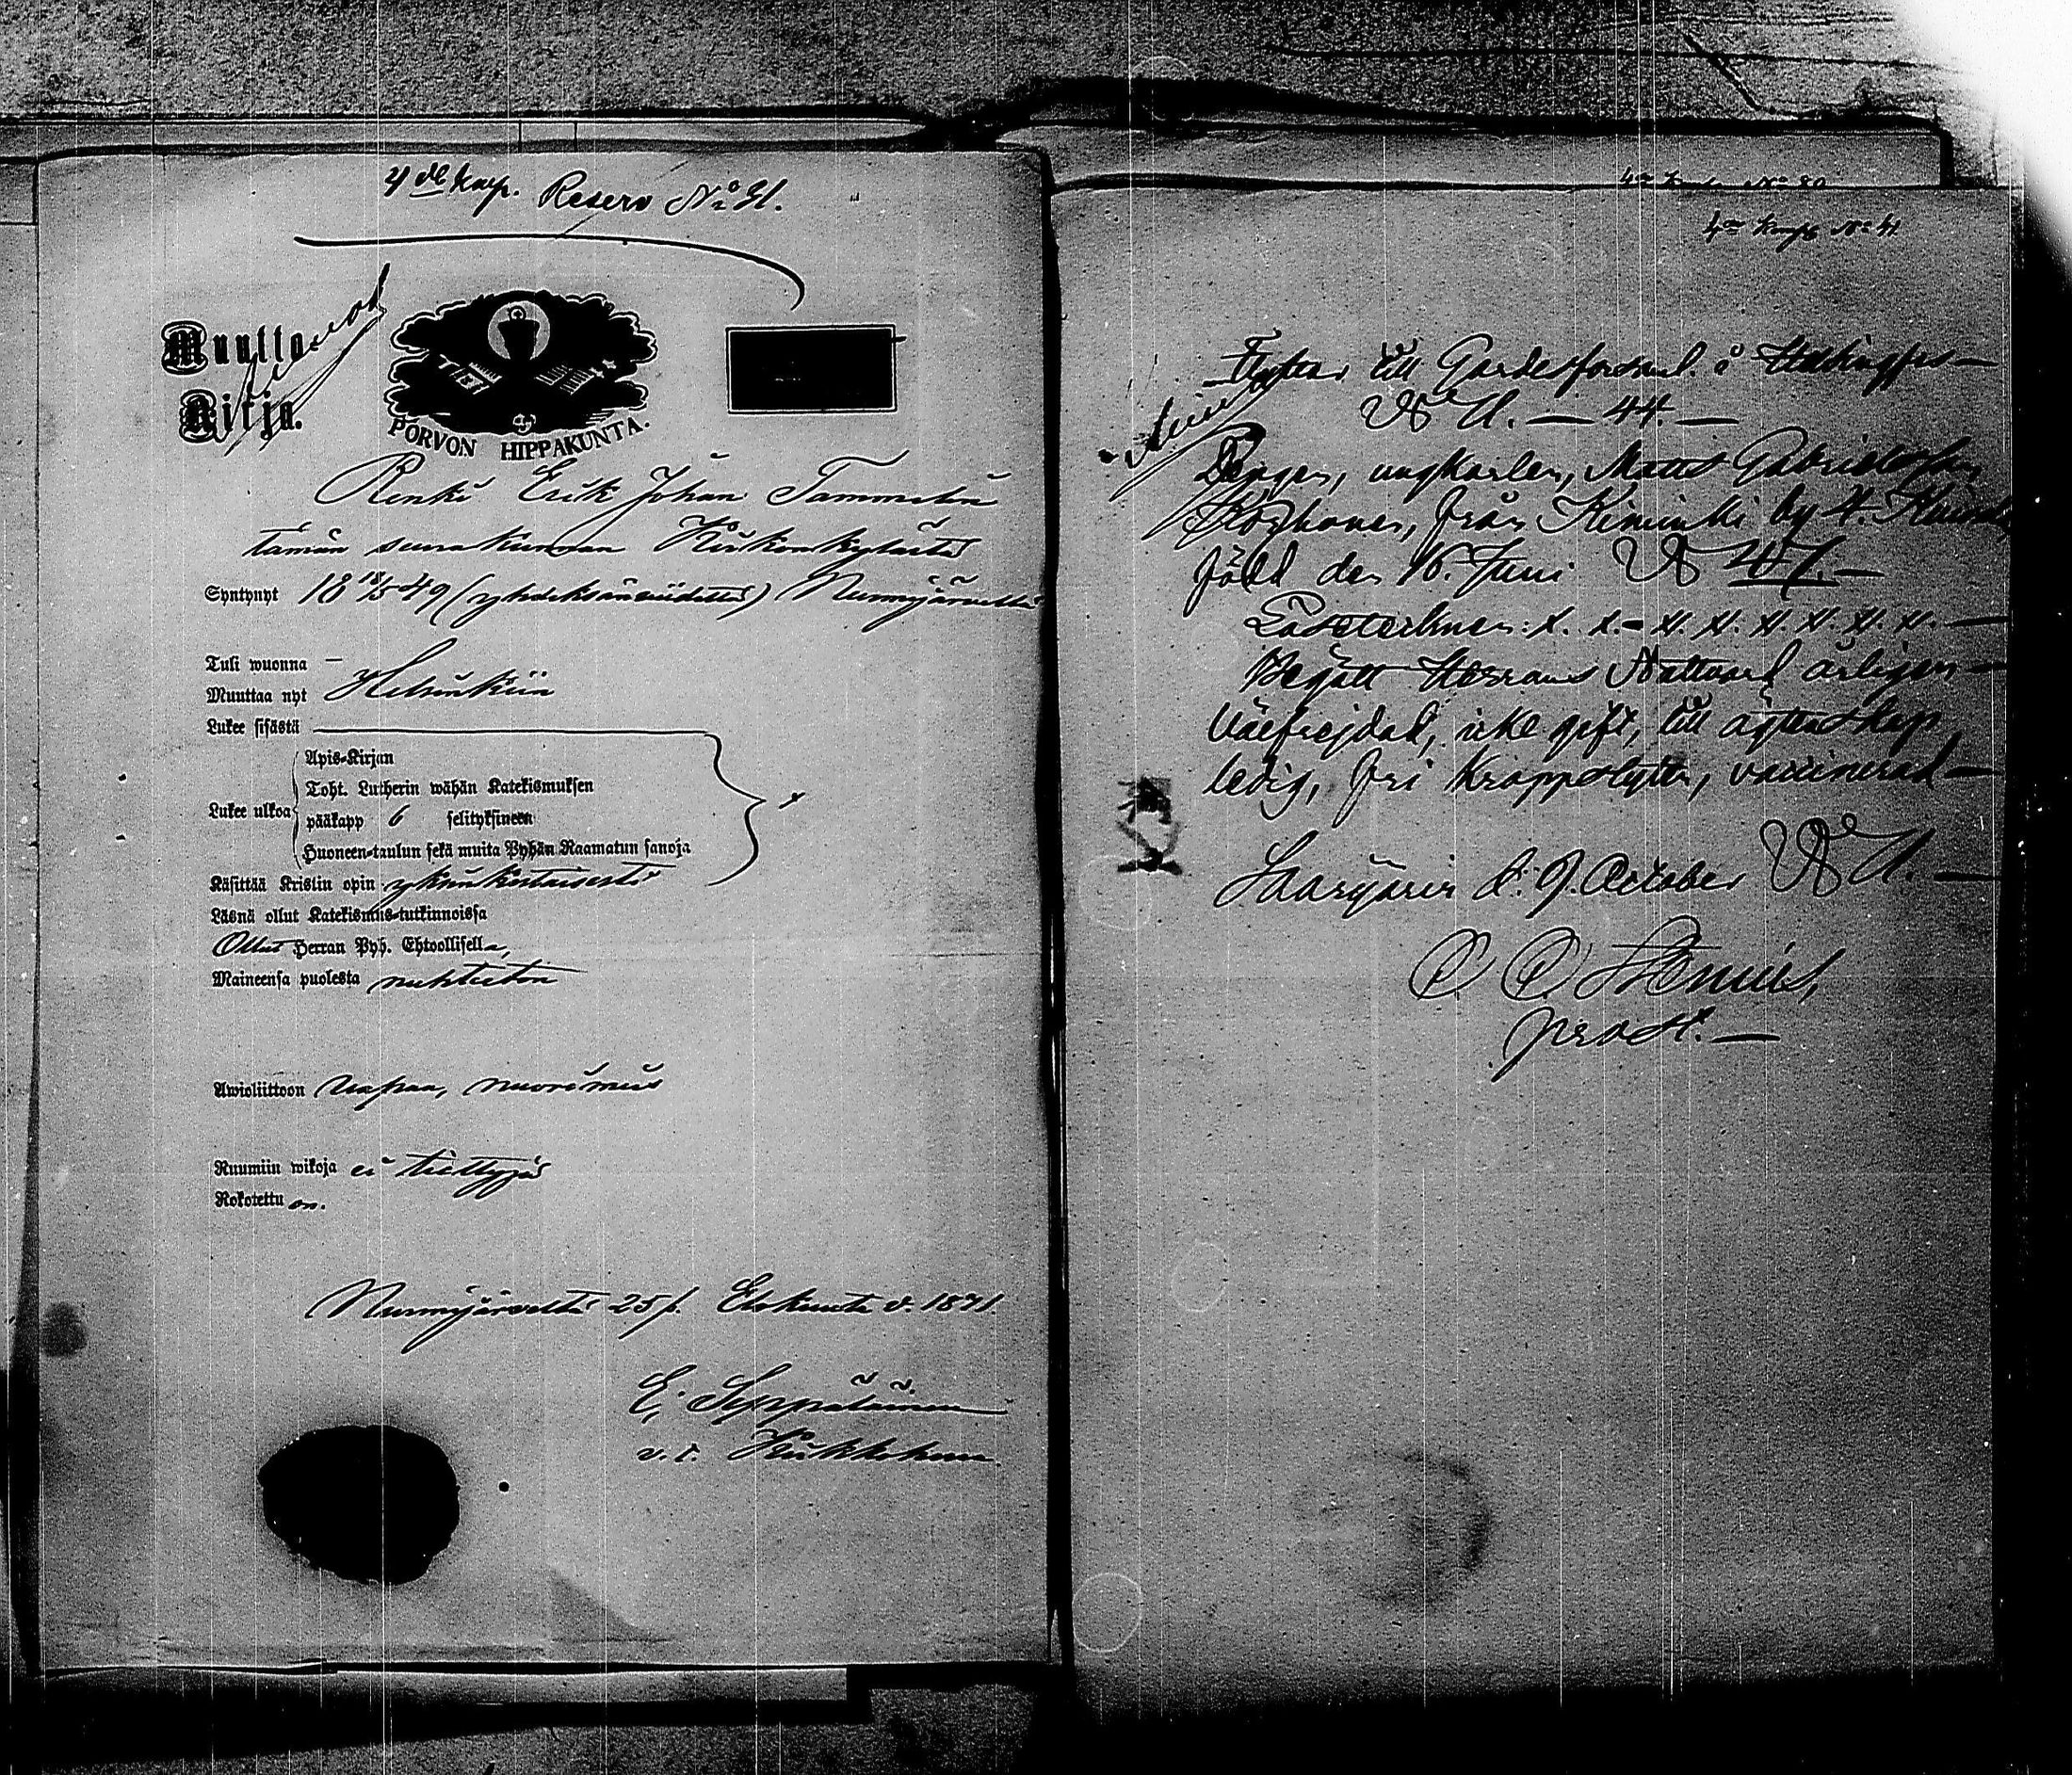 4de Komp. Reserv No 31.
Muutto-
Kirja.
PORVON HIPPAKUNTA.
Renki Erik Johan Tammelin
tämän seurakunnan Kirkonkylästä
Syntynyt 18 18/5 49 (yhdeksänviidettä) Nurmijärvellä
Tuli wuonna —
Muuttaa nyt Helsinkiin
Lukee sisästä
Apis-Kirjan
Toht. Lutherin wähän Katekismuksen
Lukee ulkoa
pääkapp 6 selityksineen
Huoneen-taulun sekä muita Pyhän Raamatun sanoja
Käsittää Kristin opin yksinkertaisesti
Läsnä ollut Katekismus-tutkinnoissa
Ollut Herran Pyh. Ehtoollisella,
Maineensa puolesta nuhteeton
Awioliittoon vapaa, nuori mies
Ruumiin wikoja ei tiettyjä
Rokotettu on.
Nurmijärveltä 25 p. Elokuuta v. 1871
E. Seppäläinen
v.t. Kirkkoherra
4de Komp No 41
Flyttar till Gardesförsaml. i Helsingfors —
No 11. — 44. —
Drängen, ungkarlen, Matts Gabrielsson
Korhonen, från Kiminki by
född den 16. Juni
Begått Herrans Nattvard årligen —
Välfrejdad, icke gift, till ägtenskap
ledig, fri kroppslyten, vaccinerad —
Saarijärvi d. 9. October
prost. —